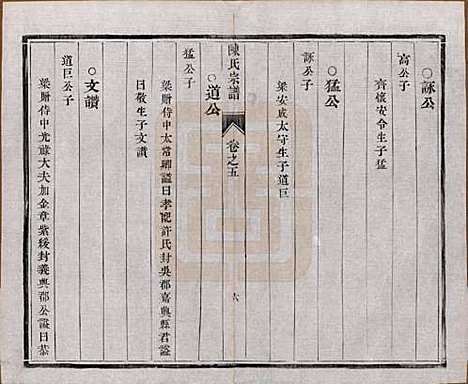 ○詠公
高公子
齊懷安令生子猛
○猛公
詠公子
梁安成太守生子道巨
陳氏宗譜 卷之五 六
○道公
猛公子
梁贈侍中太常卿諡曰孝配許氏封吳郡嘉興縣君諡
曰敬生子文讚
○文讚
道巨公子
梁贈侍中光祿大夫加金章紫綬封義興郡公諡曰恭